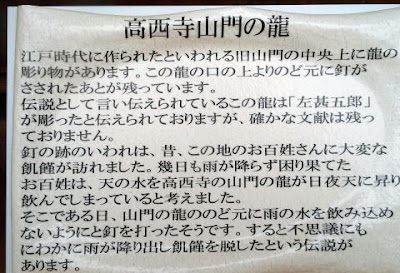 高西寺山門の龍
江戸時代に作られたといわれる旧山門の中央上に龍の
彫り物があります。この龍の口の上よりのど元に釘が
さされたあとが残っています。
伝説として言い伝えられているこの龍は「左甚五郎」
が彫ったと伝えられておりますが、確かな文献は残っ
ておりません。
釘の跡のいわれは、昔、この地のお百姓さんに大変な
飢饉が訪れました。幾日も雨が降らず困り果てた
お百姓は、天の水を高西寺の山門の龍が日夜天に昇り
飲んでしまっていると考えました。
そこである日、山門の龍ののど元に雨の水を飲み込め
ないようにと釘を打ったそうです。すると不思議にも
にわかに雨が降り出し飢饉を脱したという伝説が
あります。